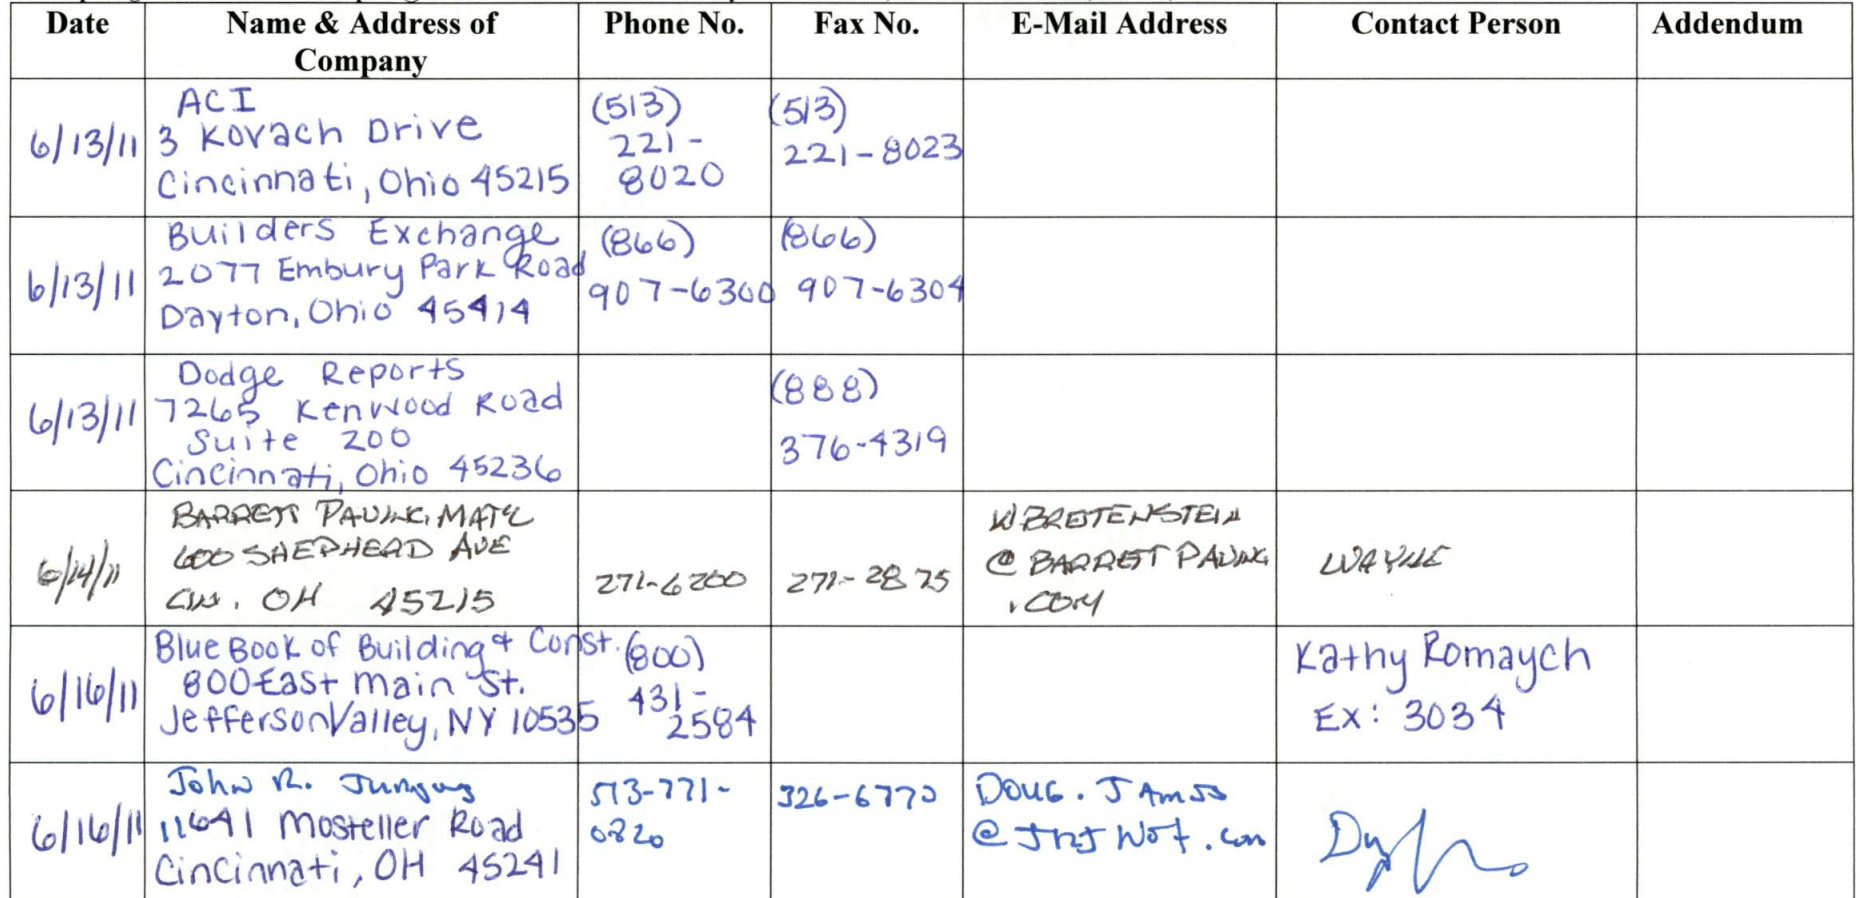 Date Name & Address of Company Phone No. Fax No. E-Mail Address Contact Person Addendum
6/13/11
ACI
3 Kovach Drive
Cincinnati, Ohio 45215
(513)
221-
8020
(513)
221-8023
6/13/11
Builders Exchange
2077 Embury Park Road
Dayton, Ohio 45414
(866)
907-6300
(866)
907-6304
6/13/11
Dodge Reports
7265 Kenwood Road
Suite 200
Cincinnati, Ohio 45236
(888)
376-4319
6/14/11
BARRETT PAVING MAT'L
600 SHEPHERD AVE
CIN. OH 45215
271-6200
271-2875
WBREITENSTEIN
@ BARRETT PAVING
.COM
WAYNE
6/16/11
Blue Book of Building & Const.
800 East Main St.
Jefferson Valley, NY 10535
(800)
431-
2584
Kathy Romaych
Ex: 3034
6/16/11
John R.
11641 Mosteller Road
Cincinnati, OH 45241
513-771-
0820
326-6770
DOUG.
@